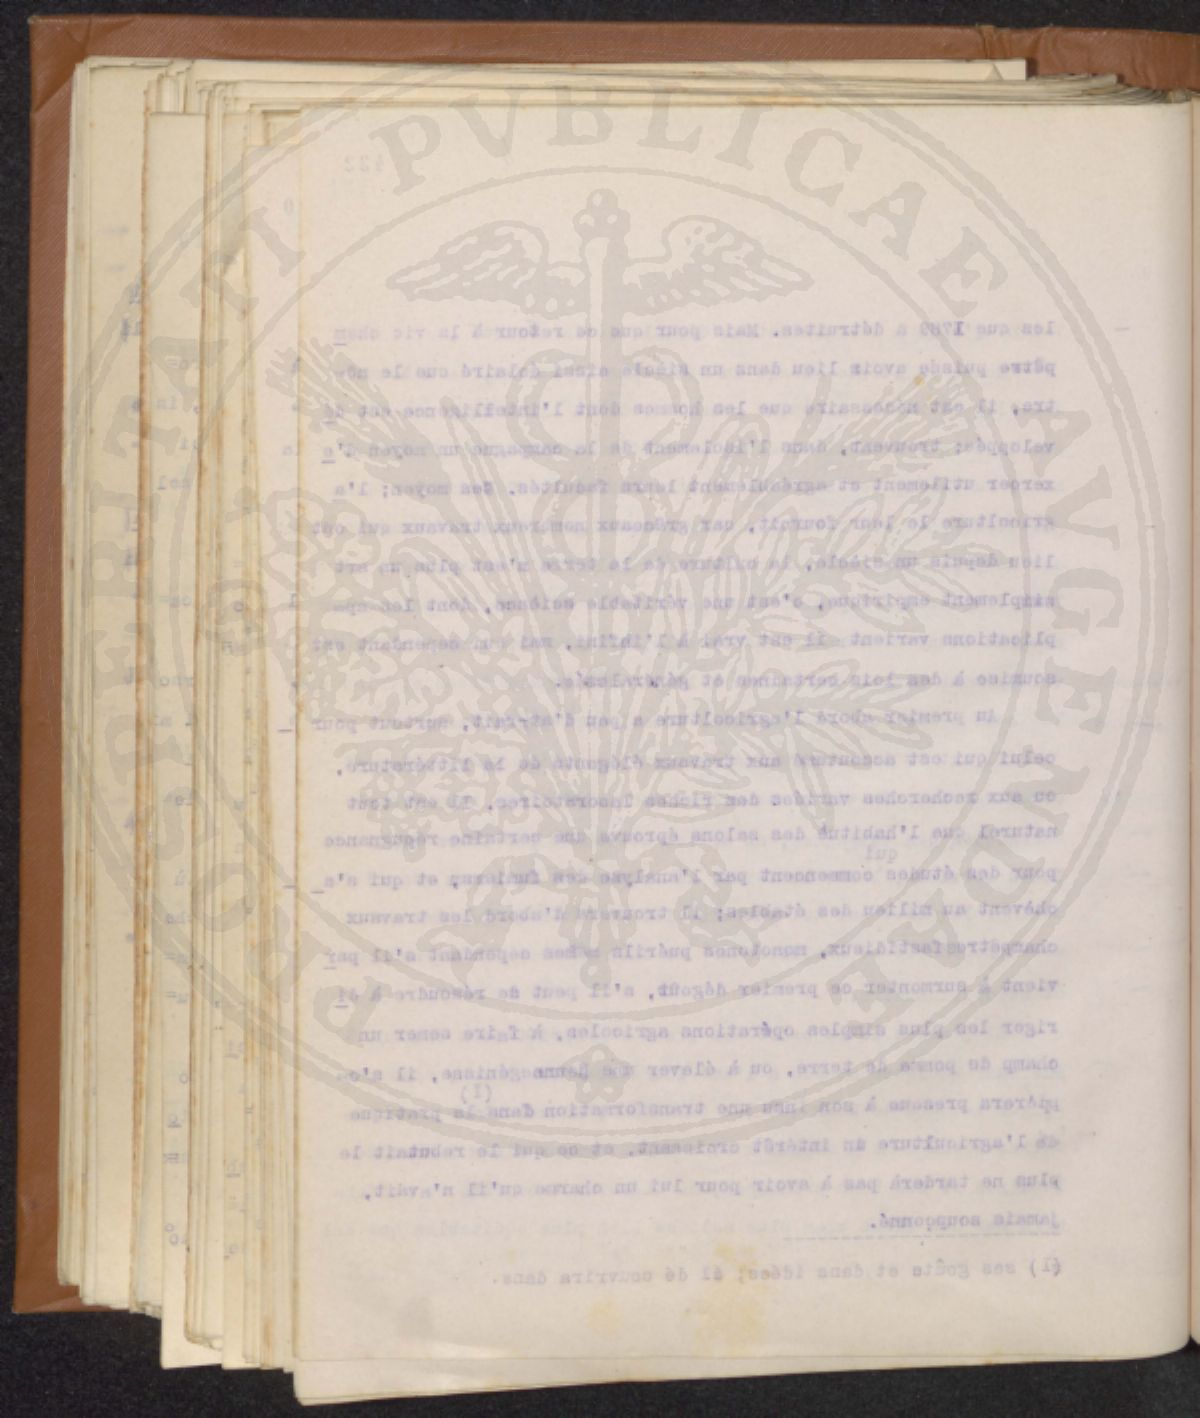 422
les que 1789 a détruites. Mais pour que ce retour à la vie cham
pêtre puisse avoir lieu dans un siècle aussi éclairé que le nô-
tre, il est nécessaire que les hommes dont l'intelligence est dé
veloppée; trouvent, dans l'isolement de la campagne un moyen d'e
xercer utilement et agréablement leurs facultés. Ces moyen; l'a
griculture le leur fournit, car grâceaux nombreux travaux qui ont
lieu depuis un siècle, la culture de la terre n'est plus un art
simplement empirique, c'est une véritable science, dont les ap
plications varient il est vrai à l'infini, mai qui cependant est
soumise à des lois certaines et générales.
Au premier abord l'agriculture a peu d'attrait, surtout pour
celui qui est accoutumé aux travaux élégants de la littérature,
ou aux recherches variées des riches laboratoires. Il est tout
naturel que l'habitué des salons éprouve une certaine répugnance
qui
pour des études commencent par l'analyse des fumiers, et qui s'a
chèvent au milieu des étables; il trouvera d'abord les travaux
champêtresfastidieux, monotones puérils mêmes cependant s'il par
vient à surmonter ce premier dégoût, s'il peut se résoudre à di
riger les plus simples opérations agricoles, à faire semer un
champ de pomme de terre, ou à élever une jeunegénisse, il s'o-
(I)
pèrera presque à son insu une transformation dans la pratique
de l'agriculture un intérêt croissant, et ce qui le rebutait le
plus ne tardera pas à avoir pour lui un charme qu'il n'avait,
jamais soupçonné.
(I) ses goûts et dans idées; il dé couvrira dans.
PROSPERITATI PVBLICAE AVGENDAE